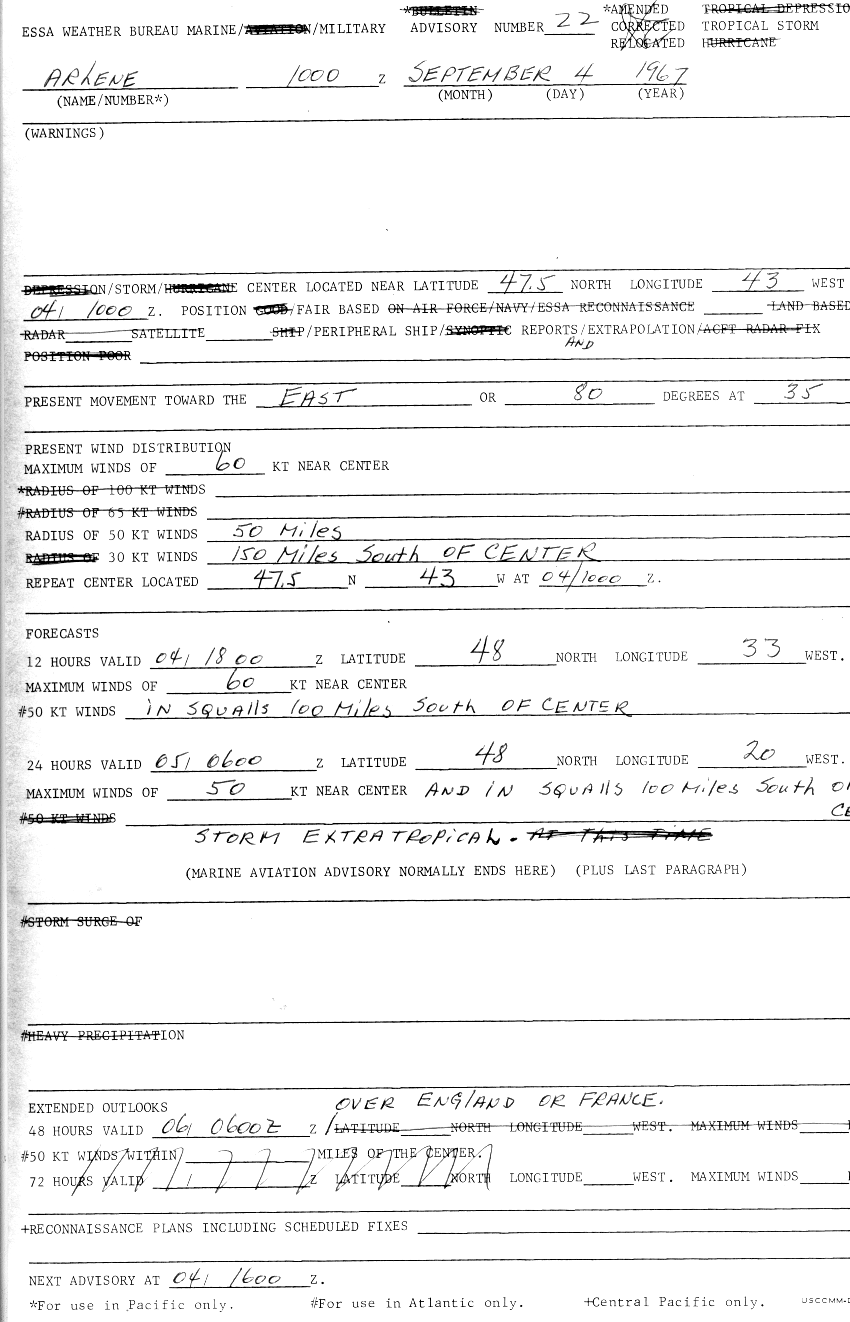 *BULLETIN *AMENDED TROPICAL DEPRESSIO
ESSA WEATHER BUREAU MARINE/AVIATION/MILITARY ADVISORY NUMBER 22 CORRECTED TROPICAL STORM
RELOCATED HURRICANE
ARLENE 1000 Z SEPTEMBER 4 1967
(NAME/NUMBER*) (MONTH) (DAY) (YEAR)
(WARNINGS)
DEPRESSION/STORM/HURRICANE CENTER LOCATED NEAR LATITUDE 47.5 NORTH LONGITUDE 43 WEST
04/ 1000 Z. POSITION GOOD/FAIR BASED ON AIR FORCE/NAVY/ESSA RECONNAISSANCE LAND BASED
RADAR SATELLITE SHIP/PERIPHERAL SHIP/SYNOPTIC REPORTS/EXTRAPOLATION/ACFT RADAR FIX
AND
POSITION POOR
PRESENT MOVEMENT TOWARD THE EAST OR 80 DEGREES AT 35
PRESENT WIND DISTRIBUTION
MAXIMUM WINDS OF 60 KT NEAR CENTER
*RADIUS OF 100 KT WINDS
#RADIUS OF 65 KT WINDS
RADIUS OF 50 KT WINDS 50 Miles
RADIUS OF 30 KT WINDS 150 Miles South OF CENTER
REPEAT CENTER LOCATED 47.5 N 43 W AT 04/1000 Z.
FORECASTS
12 HOURS VALID 04/ 1800 Z LATITUDE 48 NORTH LONGITUDE 33 WEST.
MAXIMUM WINDS OF 60 KT NEAR CENTER
#50 KT WINDS iN SQUAlls 100 Miles South OF CENTER
24 HOURS VALID 05/ 0600 Z LATITUDE 48 NORTH LONGITUDE 20 WEST.
MAXIMUM WINDS OF 50 KT NEAR CENTER AND iN SQUAlls 100 Miles South O
CE
#50 KT WINDS
STORM EXTRATROPiCAL. AT THIS TIME
(MARINE AVIATION ADVISORY NORMALLY ENDS HERE) (PLUS LAST PARAGRAPH)
#STORM SURGE OF
#HEAVY PRECIPITATION
OVER ENGlAND OR FRANCE.
EXTENDED OUTLOOKS
48 HOURS VALID 06/ 0600Z Z /LATITUDE NORTH LONGITUDE WEST. MAXIMUM WINDS
#50 KT WINDS WITHIN MILES OF THE CENTER.
72 HOURS VALID Z LATITUDE NORTH LONGITUDE WEST. MAXIMUM WINDS
+RECONNAISSANCE PLANS INCLUDING SCHEDULED FIXES
NEXT ADVISORY AT 04/ 1600 Z.
*For use in Pacific only. #For use in Atlantic only. +Central Pacific only. USCCMM-D